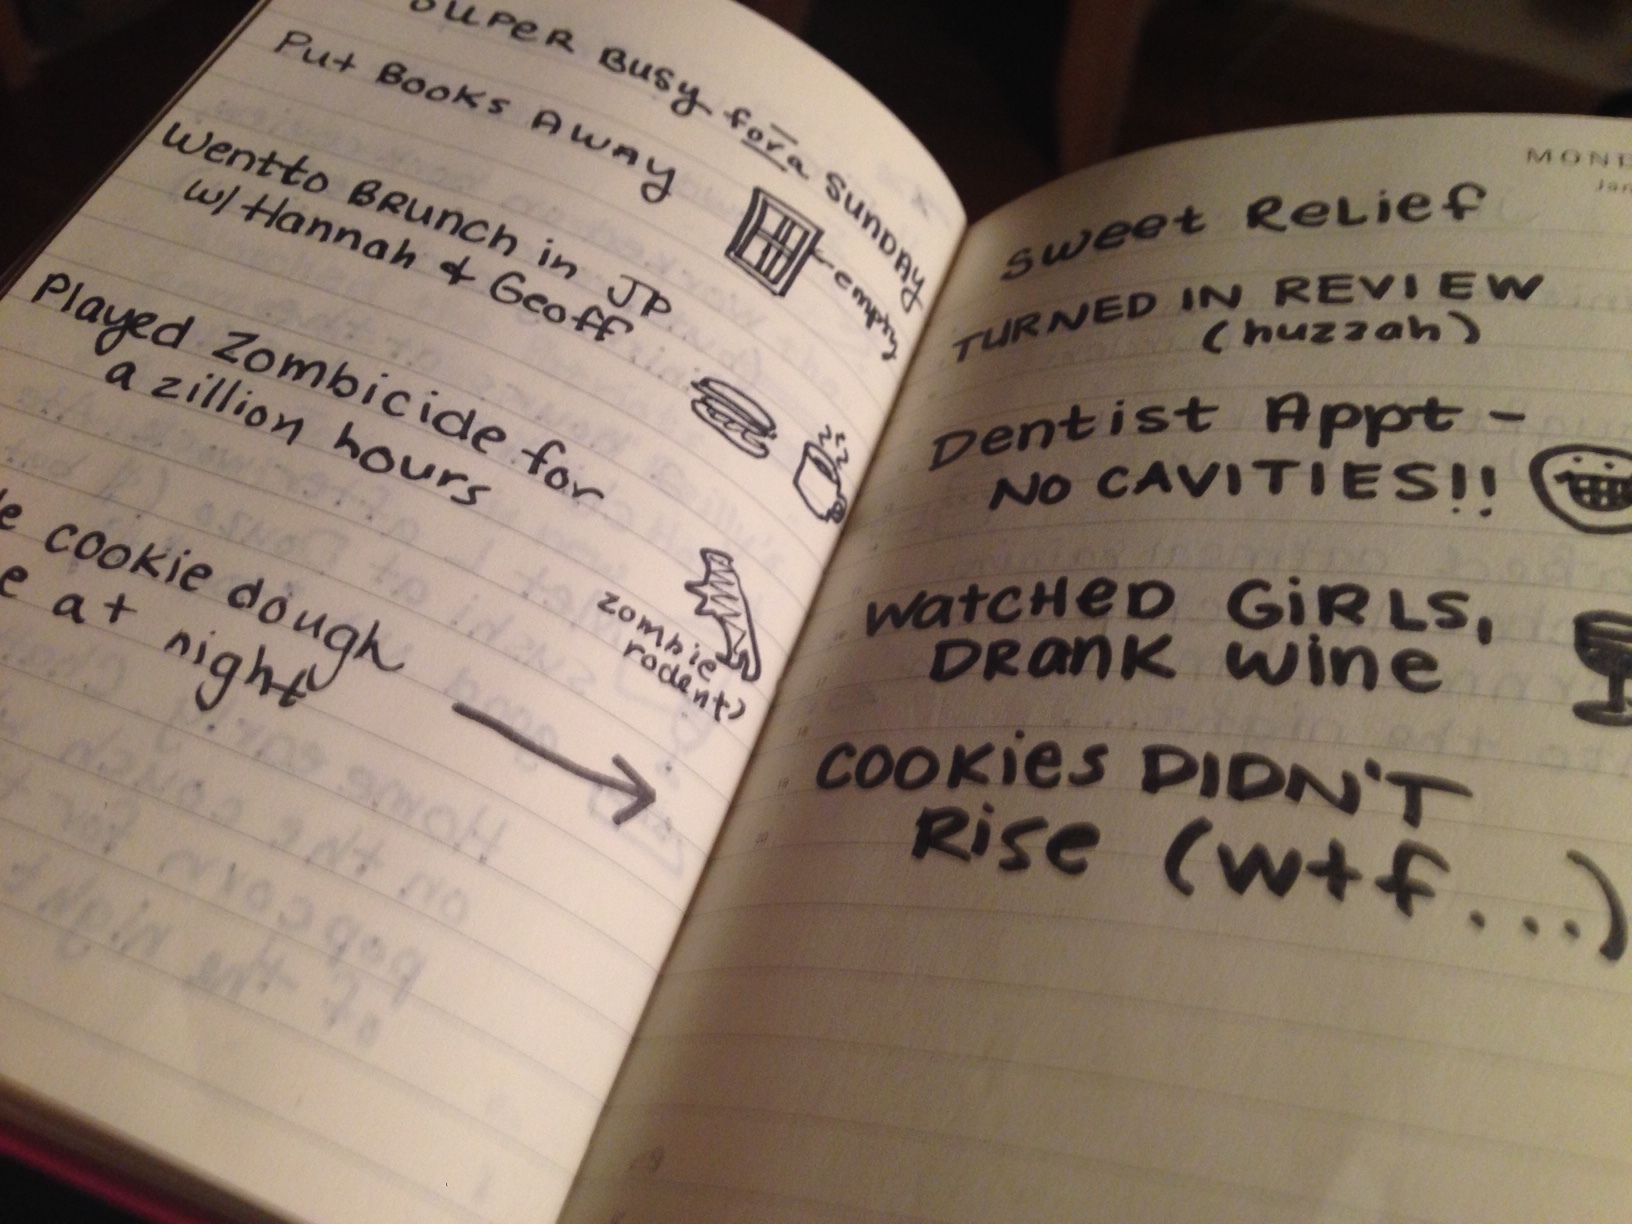 SUPER BUSY for a SUNDAY
Put BOOKS AWAY
empty
Went to BRUNCH in JP
w/ Hannah & Geoff
Played Zombicide for
a zillion hours
zombie
rodent)
cookie dough
at night
SWEET RELIEF
TURNED IN REVIEW
(huzzah)
Dentist Appt -
NO CAVITIES!!
WATCHED GiRLS,
DRANK wine
COOKIES DIDN'T
Rise (wtf...)